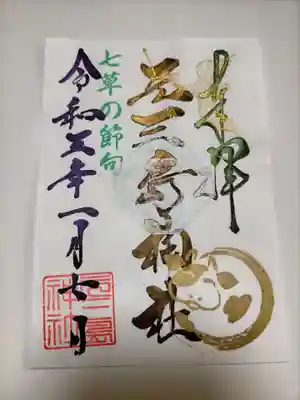 奉拝
元三島神社
七草の節句
令和五年一月七日
三島
神社